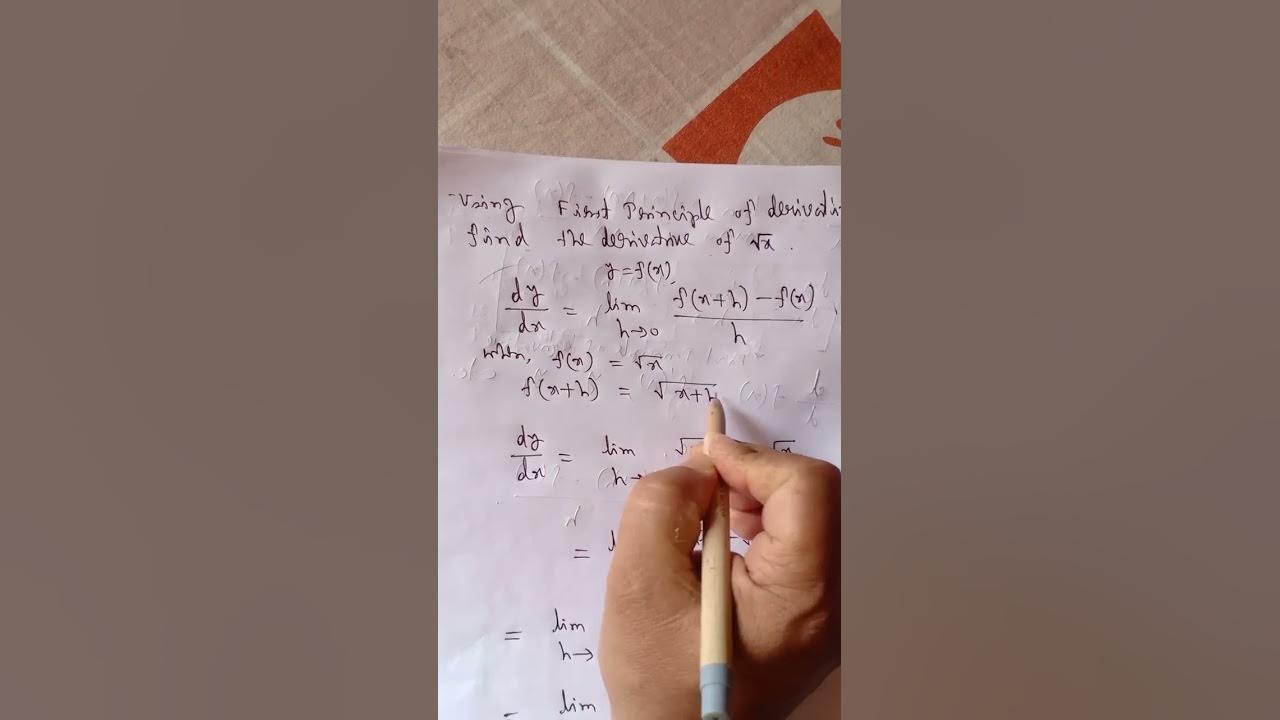 Using First Principle of derivati
find the derivative of √x .
y = f(x)
dy/dx = lim h→0 f(x+h) − f(x) / h
when, f(x) = √x
f(x+h) = √x+h
dy/dx = lim h→ √ √x
=
= lim h→
= lim